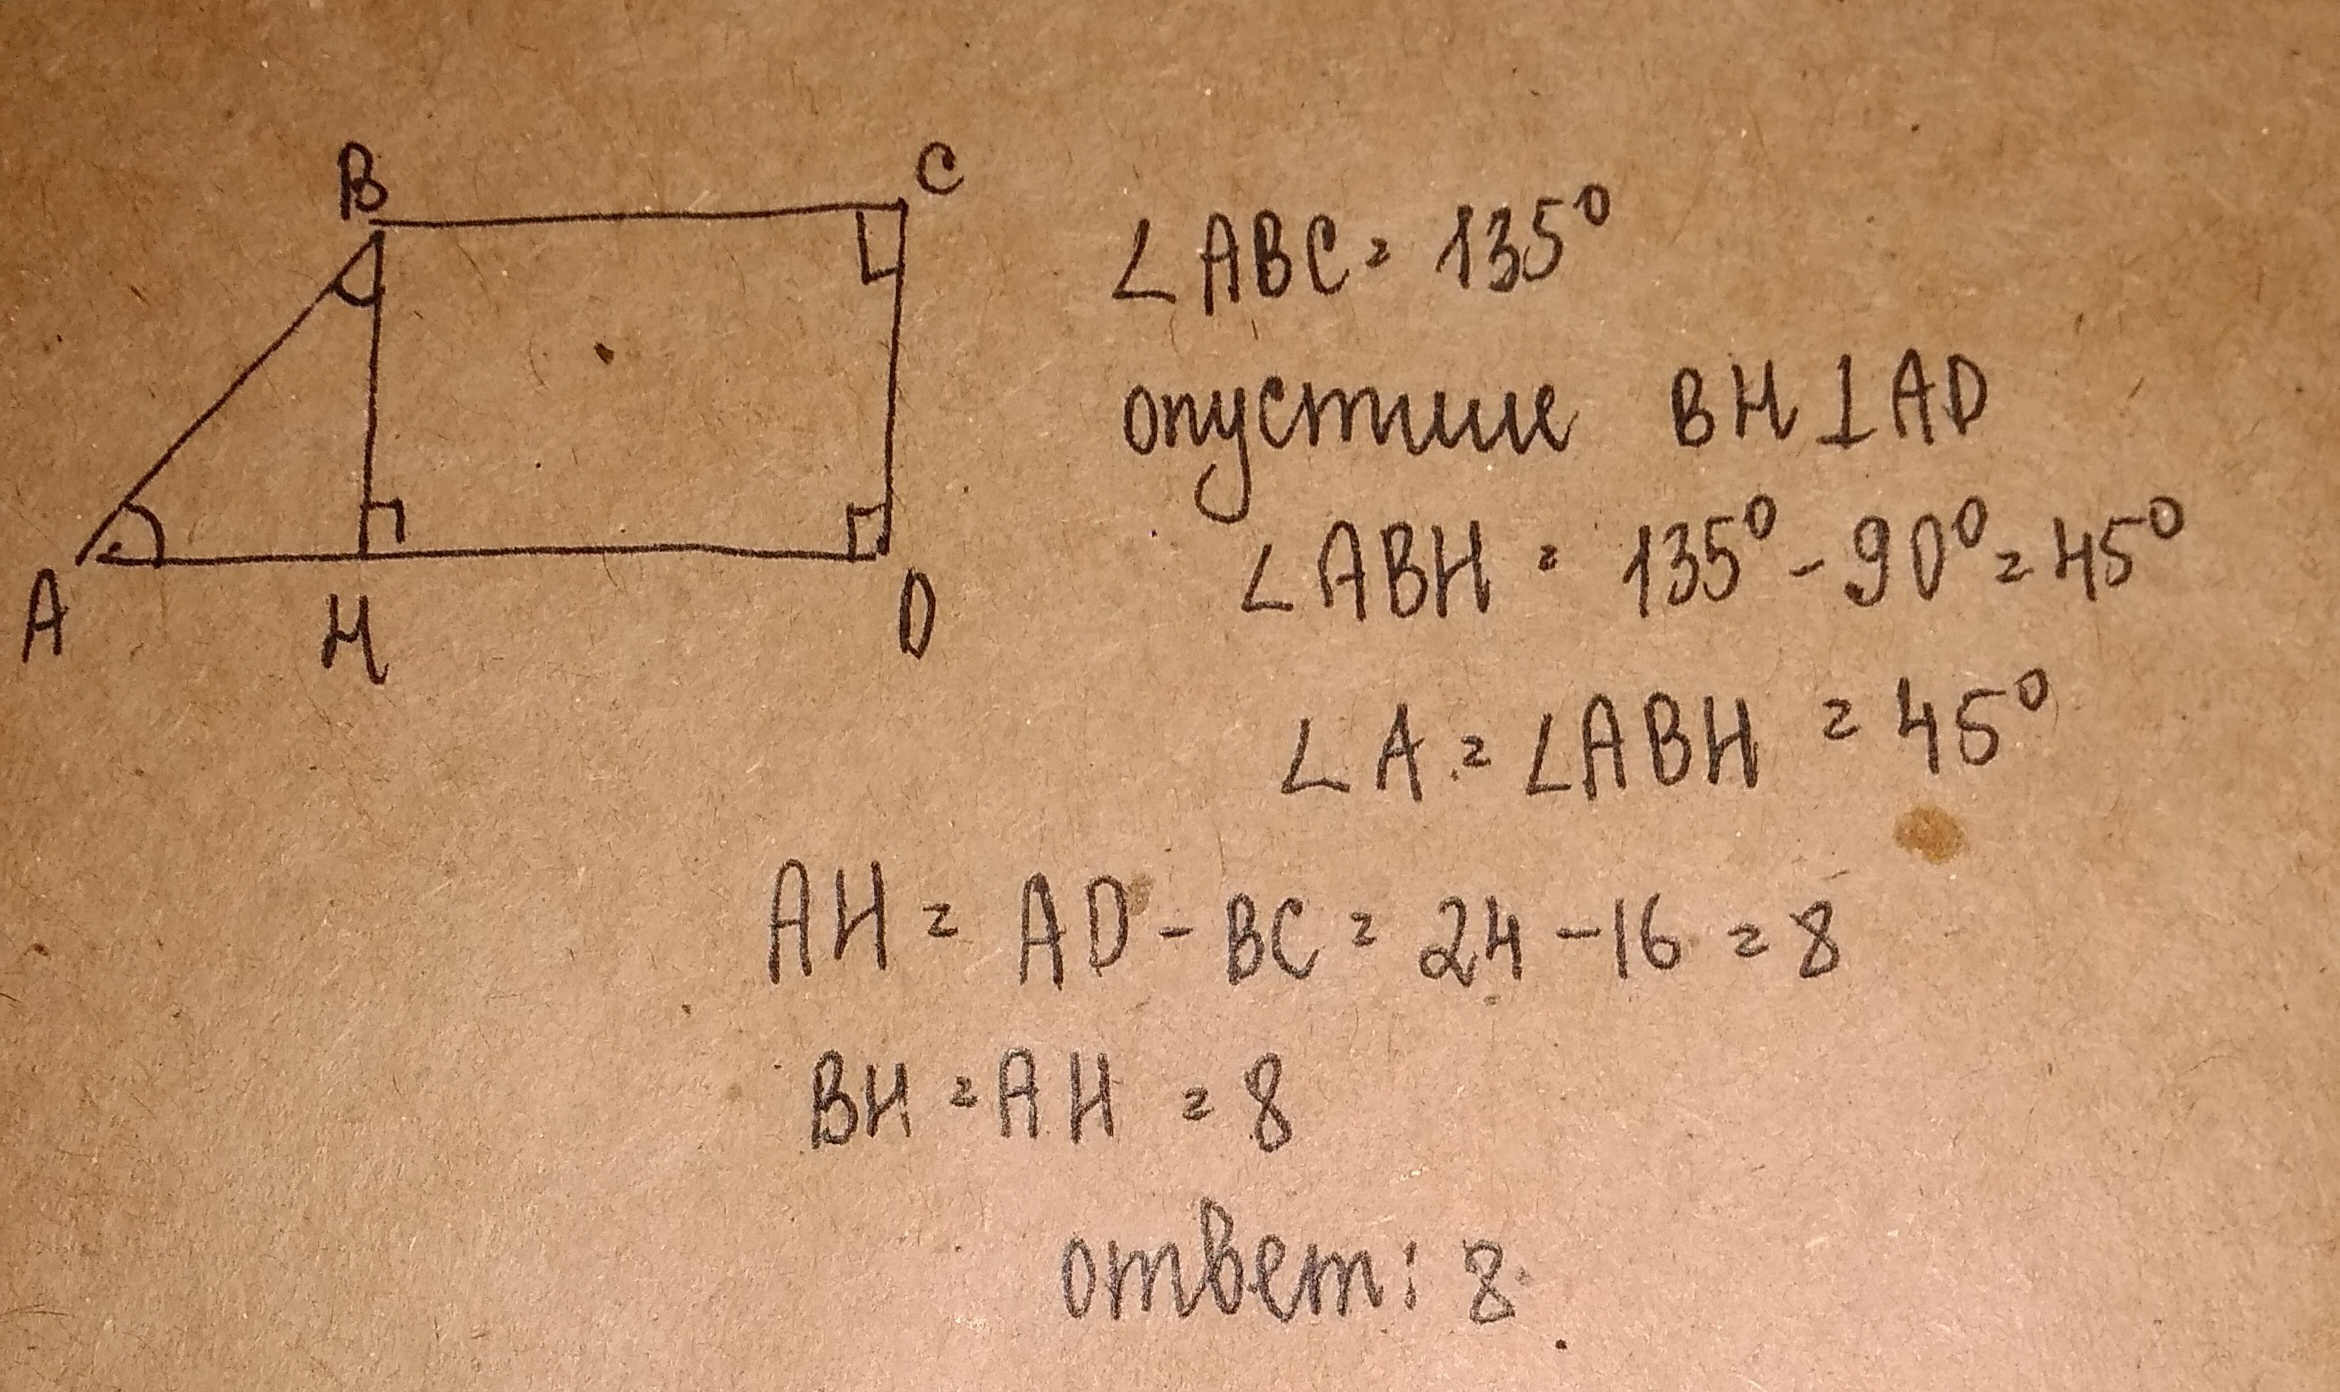 B
C
A
H
D
∠ABC = 135°
опустим BH ⊥ AD
∠ABH = 135° - 90° = 45°
∠A = ∠ABH = 45°
AH = AD - BC = 24 - 16 = 8
BH = AH = 8
ответ: 8.